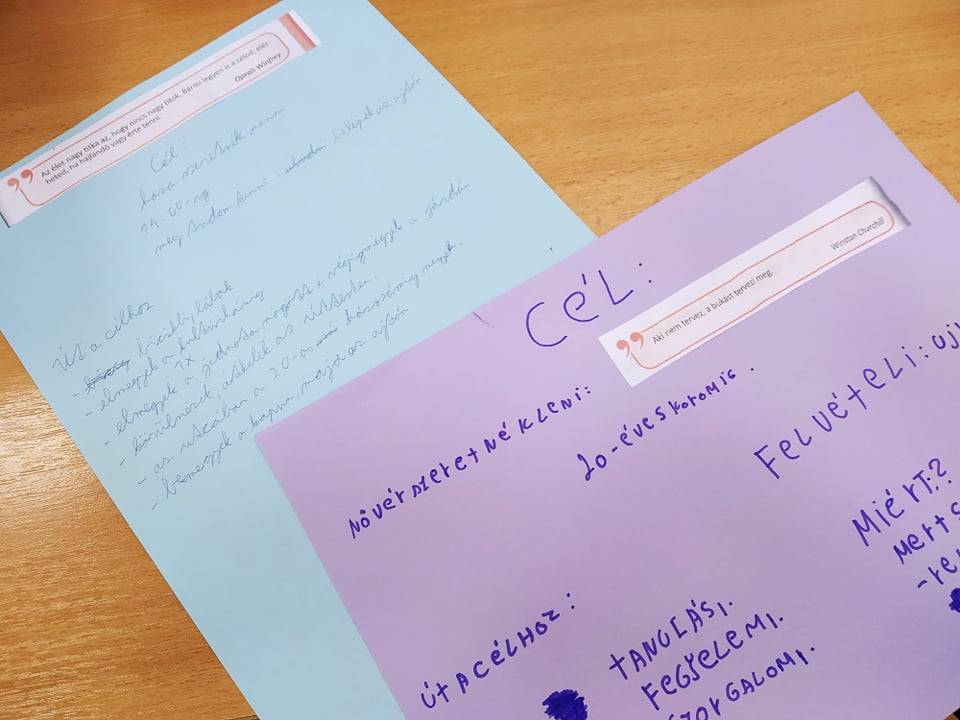 Az élet nagy titka az, hogy nincs nagy titok. Bármi legyen is a célod, elér-
heted, ha hajlandó vagy érte tenni.
Oprah Winfrey
Cél:
haza szeretnék menni
19:00-ig
meg tudom belépek az ajtón
Út a célhoz
- biciklire
- elmegyek a
- elmegyek a mögött és végigmegyek a járdán
- körülnézek, átkelek az úttesten.
- az utcában a 20-as házszámig megyek.
- bemegyek a kapun, majd az ajtón
Aki nem tervez, a bukást tervezi meg.
Winston Churchill
CÉL:
NŐVÉR SZERETNÉK LENI:
20-éves koromig.
Felvételi:
Miért:?
Mert
ÚT A CÉLHOZ:
TANULÁSI.
FEGŠELEMI.
SZORGALOMI.